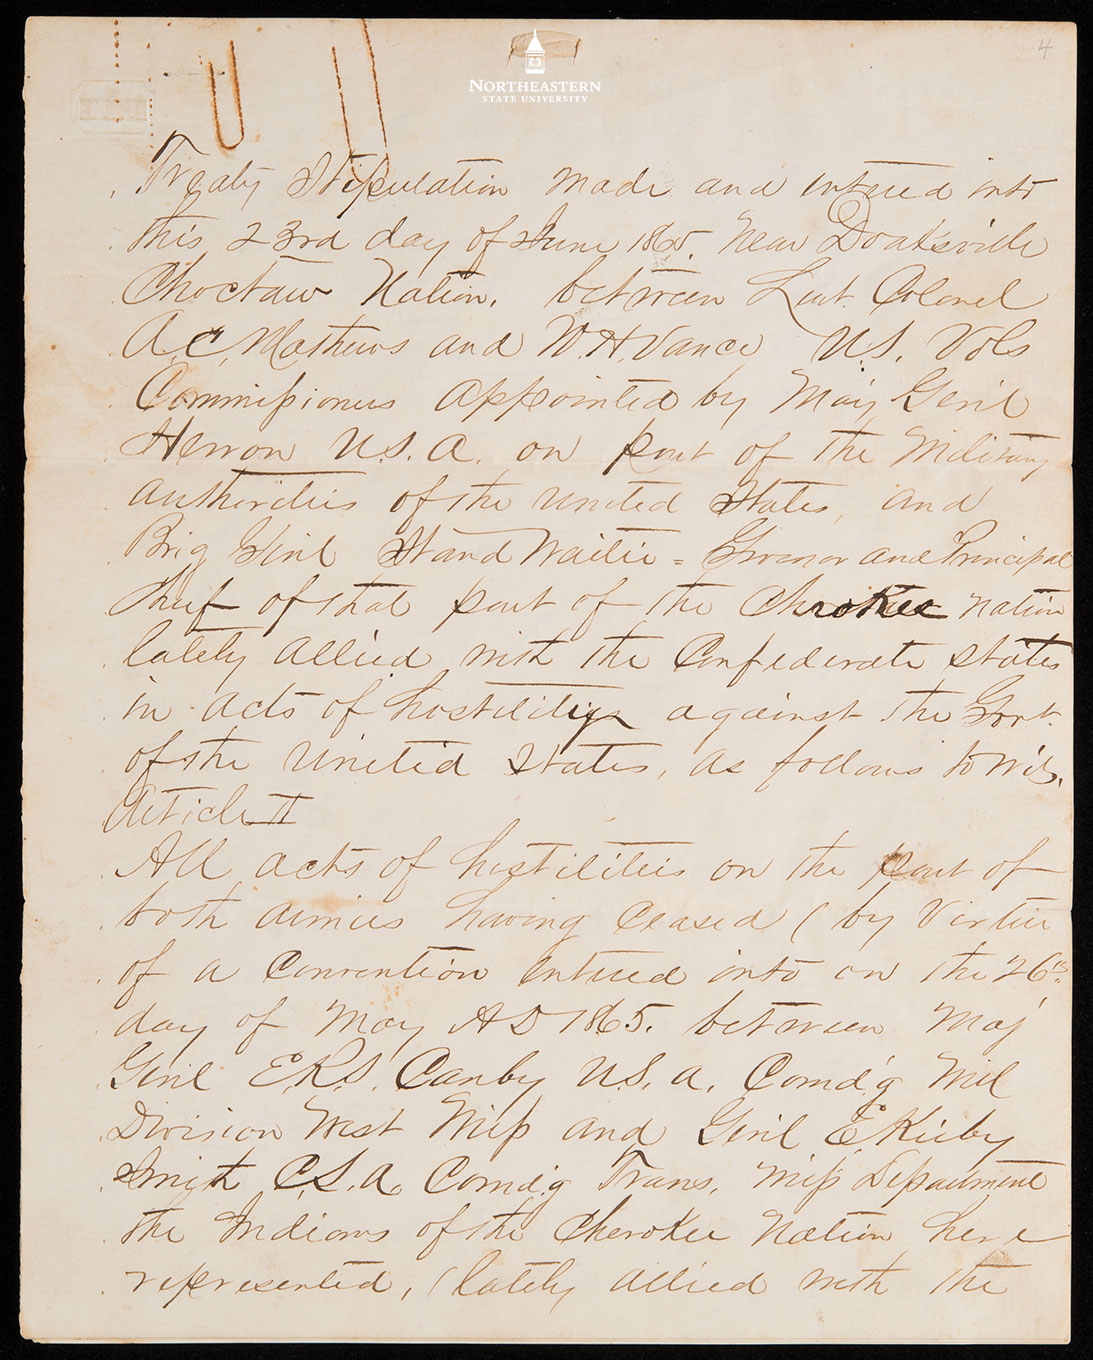 4
NORTHEASTERN
STATE UNIVERSITY
Treaty Stipulation made and entered into
this 23rd day of June 1865. near Doaksville
Choctaw Nation. between Lieut. Colonel
A. C. Mathews and W. H. Vance U.S. Vols
Commissioners appointed by Maj Genl
Herron U.S.A. on part of the Military
authorities of the United States, and
Brig Genl Stand Waitie = Governor and Principal
Chief of that part of the Cherokee Nation
lately allied with the Confederate States
in acts of hostilities against the Govt.
of the United States, as follows to wit,
Article I
All acts of hostilities on the part of
both armies having ceased (by Virtue
of a Convention entered into on the 26th
day of May AD 1865. between Maj
Genl E.R.S. Canby U.S.A. Comd'g Mil
Division West Miss and Genl E Kirby
Smith C.S.A. Comd'g Trans. Miss Department
the Indians of the Cherokee Nation here
represented, (lately allied with the